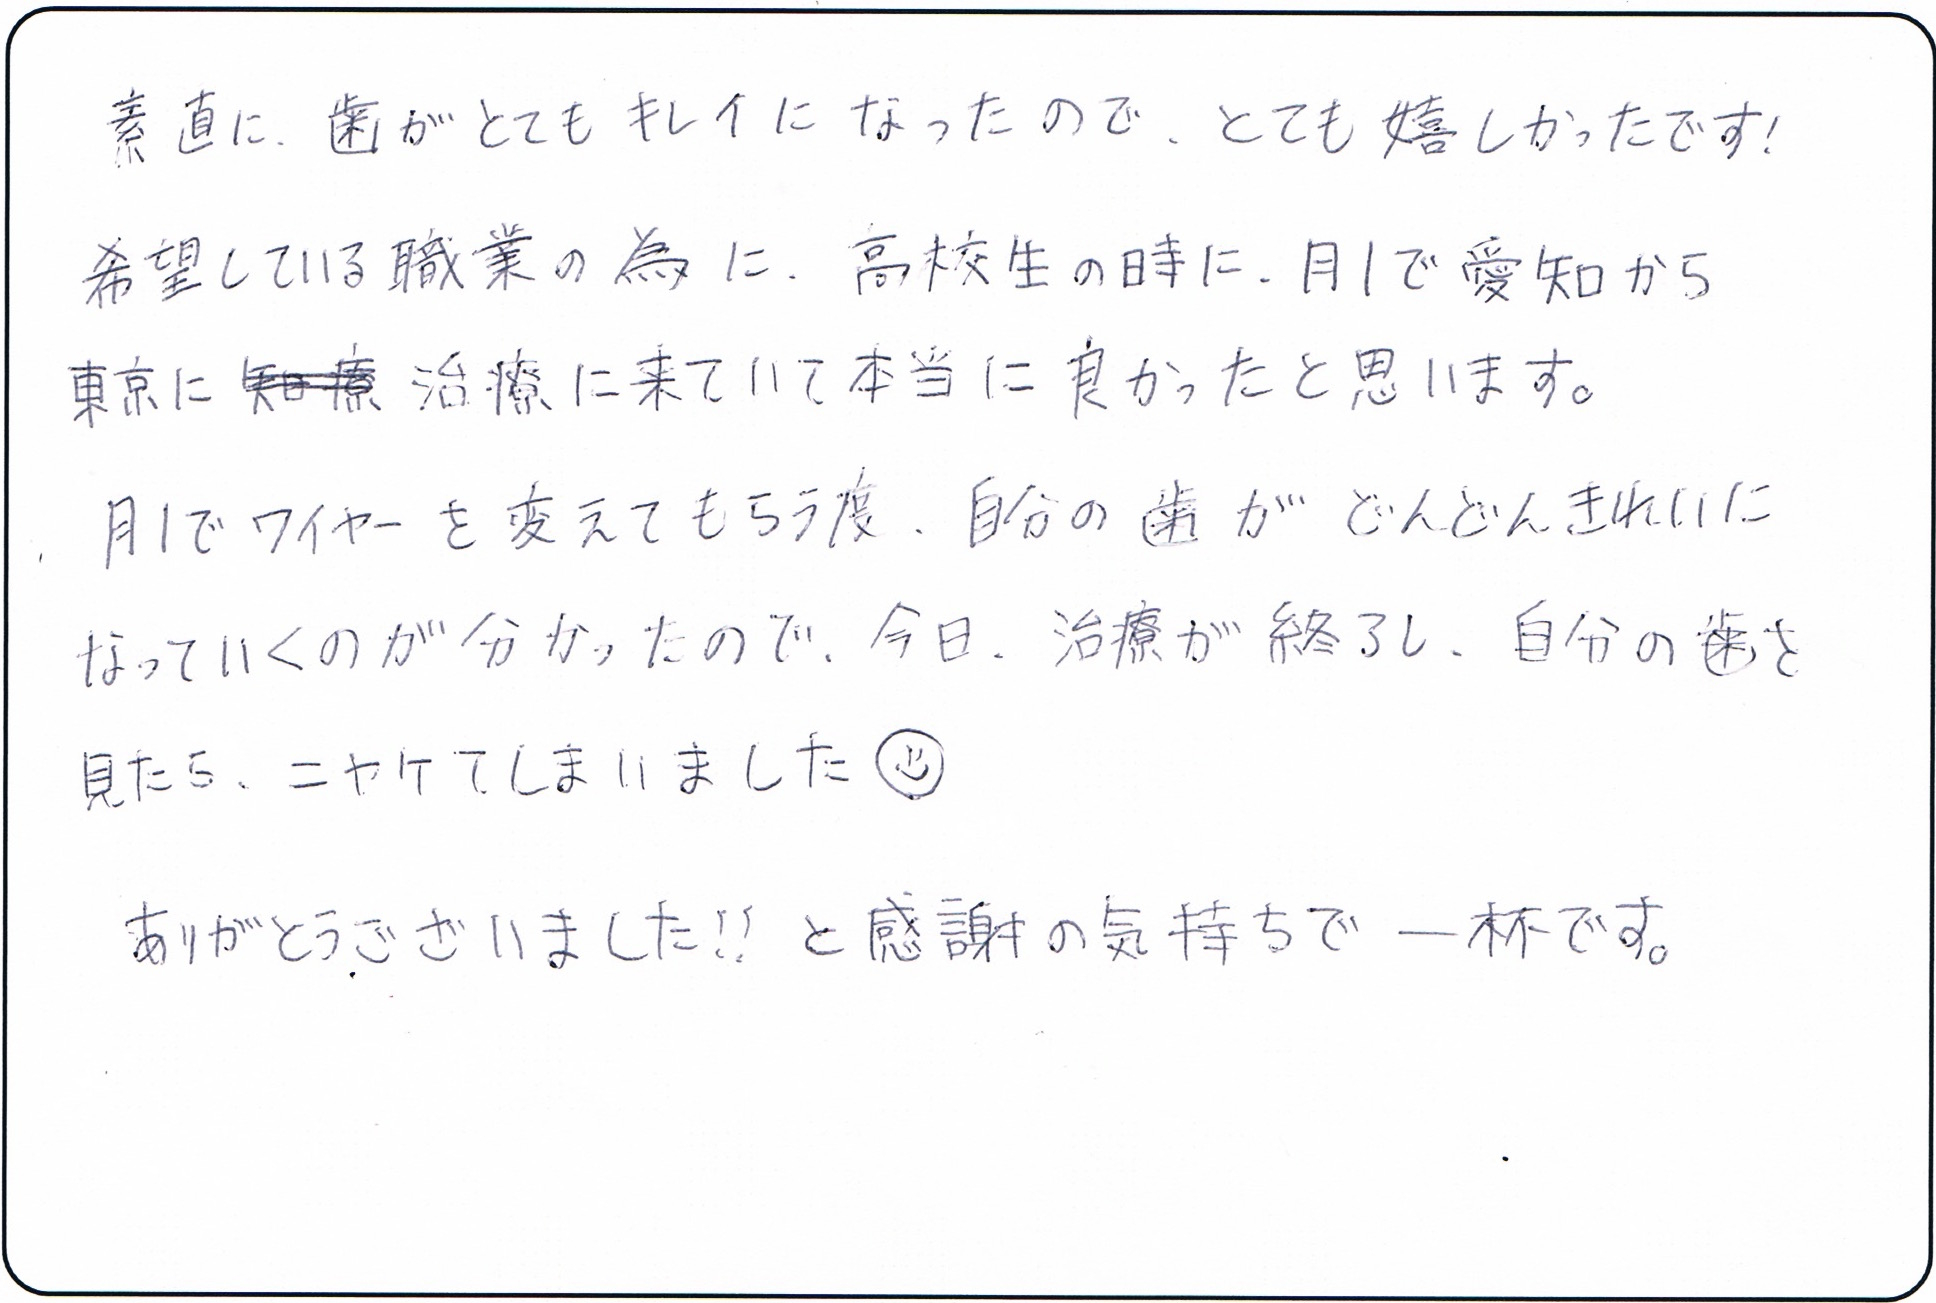 素直に、歯がとてもキレイになったので、とても嬉しかったです!
希望している職業の為に、高校生の時に、月1で愛知から
東京に 知療 治療に来ていて本当に良かったと思います。
月1でワイヤーを変えてもらう度、自分の歯がどんどんきれいに
なっていくのが分かったので、今日、治療が終了し、自分の歯を
見たら、ニヤケてしまいました☺
ありがとうございました!! と感謝の気持ちで一杯です。